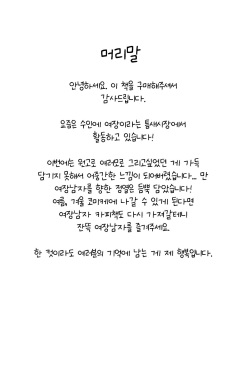 머리말
안녕하세요. 이 책을 구매해주셔서
감사드립니다.
요즘은 수인에 여장이라는 틈새시장에서
활동하고 있습니다!
이번에는 원고로 여러모로 그리고싶었던 게 가득
담기지 못해서 어중간한 느낌이 되어버렸습니다... 만
여장남자를 향한 정열은 듬뿍 담았습니다!
여름, 겨울 코미케에 나갈 수 있게 된다면
여장남자 카피책도 다시 가져갈테니
잔뜩 여장남자를 즐겨주세요.
한 컷이라도 여러분의 기억에 남는 게 제 행복입니다.